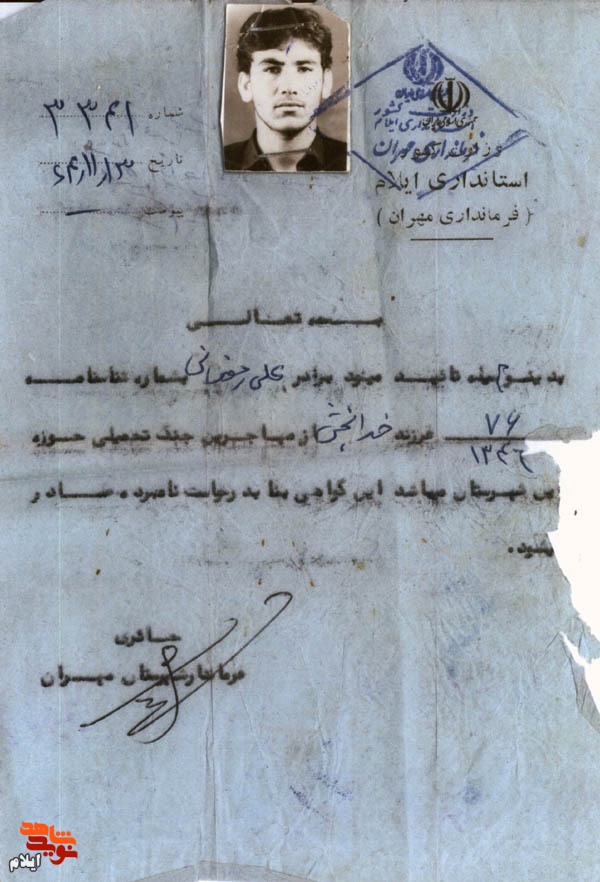 شماره ۳۳۴۱
تاریخ
پیوست
وزارت کشور
استانداری ایلام
( فرمانداری مهران )
بسمه تعالی
بدینوسیله تائید میشود برادر علی رمضانی بشماره شناسنامه
۷۶
۱۳۴۶ فرزند خدابخش از مهاجرین جنگ تحمیلی حوزه
این شهرستان میباشد این گواهی بنا بدرخواست نامبرده صادر
میشود .
حائری
فرماندار شهرستان مهران
نوید شاهد
ایلام